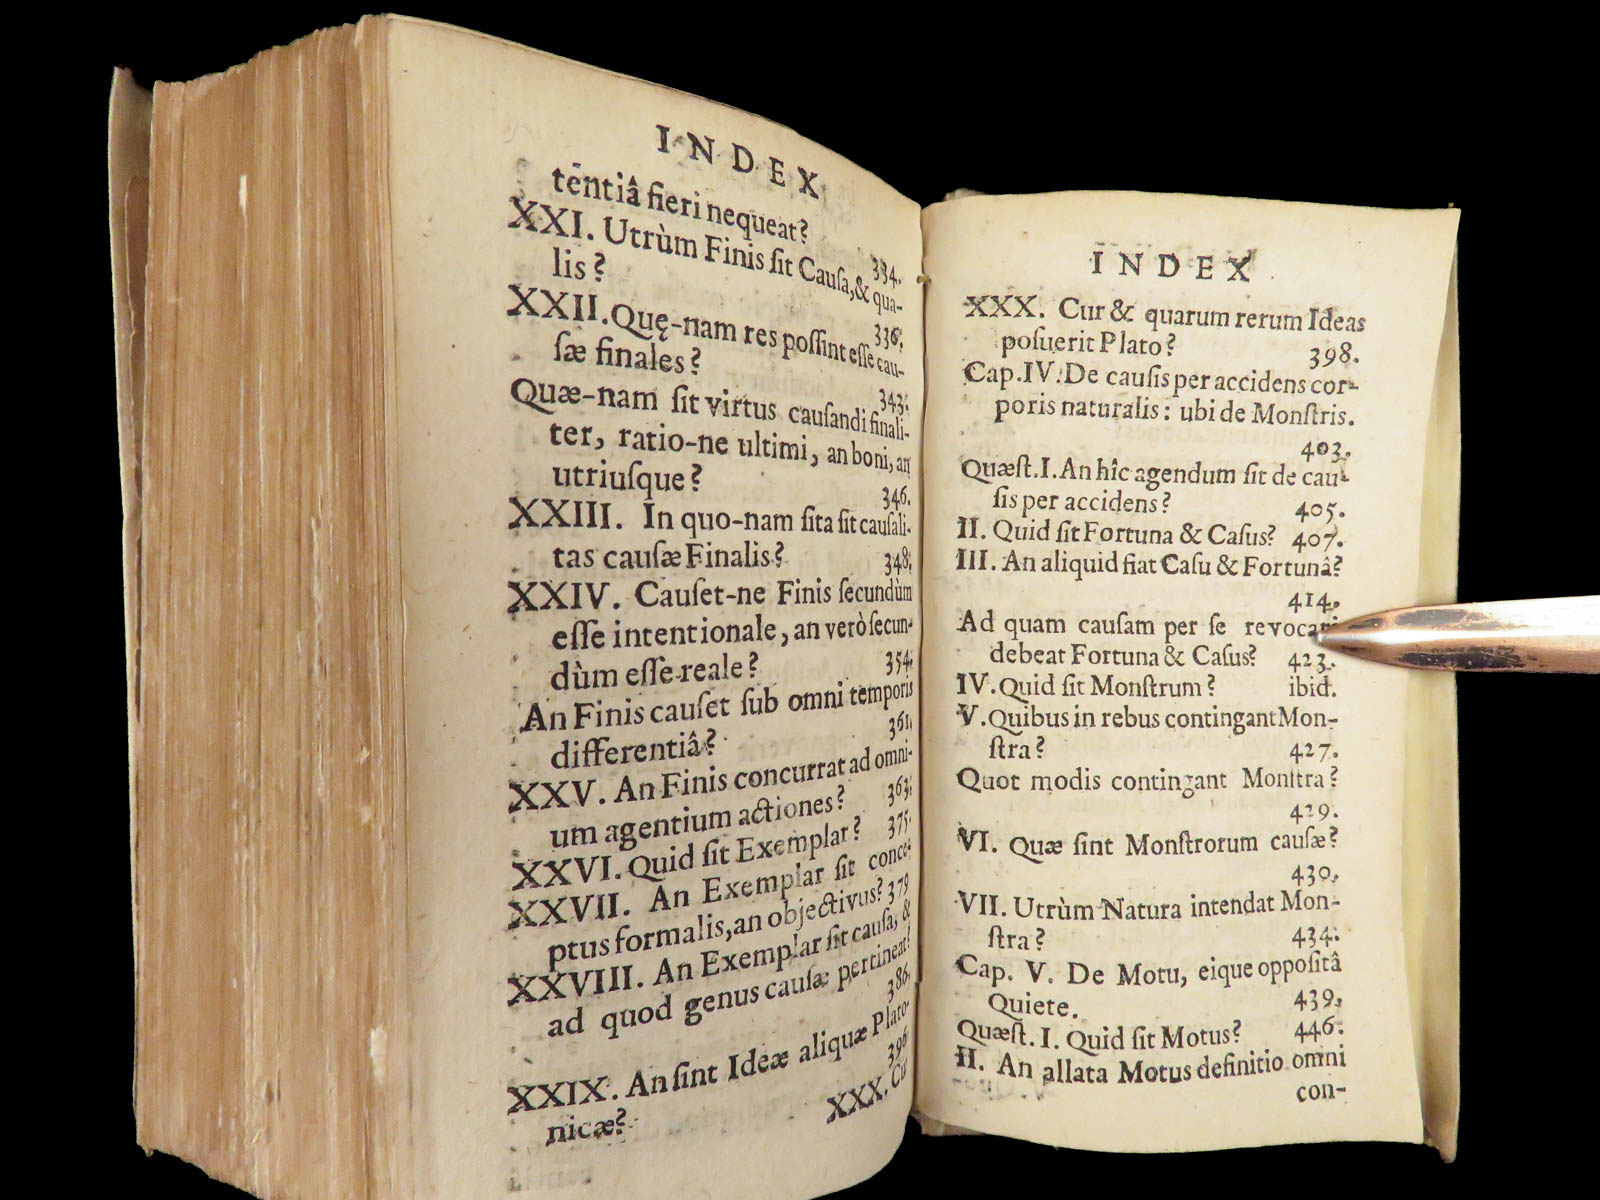 INDEX
tentiâ fieri nequeat?
334.
XXI. Utrùm Finis ſit Cauſa, & qua-
lis?
336.
XXII. Quę-nam res poſſint eſſe cau-
ſæ finales?
343.
Quæ-nam ſit virtus cauſandi finali-
ter, ratio-ne ultimi, an boni, an
utriuſque?
346.
XXIII. In quo-nam ſita ſit cauſali-
tas cauſæ Finalis?
348.
XXIV. Cauſet-ne Finis ſecundùm
eſſe intentionale, an verò ſecun-
dùm eſſe reale?
354.
An Finis cauſet ſub omni temporis
differentiâ?
361.
XXV. An Finis concurrat ad omni-
um agentium actiones?
363.
XXVI. Quid ſit Exemplar?
375.
XXVII. An Exemplar ſit conce-
ptus formalis, an objectivus? 379
XXVIII. An Exemplar ſit cauſa, &
ad quod genus cauſæ pertineat?
386.
XXIX. An ſint Ideæ aliquæ Plato-
nicæ?
396.
XXX. Cur
INDEX
XXX. Cur & quarum rerum Ideas
poſuerit Plato? 398.
Cap. IV. De cauſis per accidens cor-
poris naturalis: ubi de Monſtris.
403.
Quæſt. I. An hîc agendum ſit de cau-
ſis per accidens? 405.
II. Quid ſit Fortuna & Caſus? 407.
III. An aliquid fiat Caſu & Fortunâ?
414.
Ad quam cauſam per ſe revocari
debeat Fortuna & Caſus? 423.
IV. Quid ſit Monſtrum? ibid.
V. Quibus in rebus contingant Mon-
ſtra? 427.
Quot modis contingant Monſtra?
429.
VI. Quæ ſint Monſtrorum cauſæ?
430.
VII. Utrùm Natura intendat Mon-
ſtra? 434.
Cap. V. De Motu, eique oppoſitâ
Quiete. 439.
Quæſt. I. Quid ſit Motus? 446.
II. An allata Motus definitio omni
con-